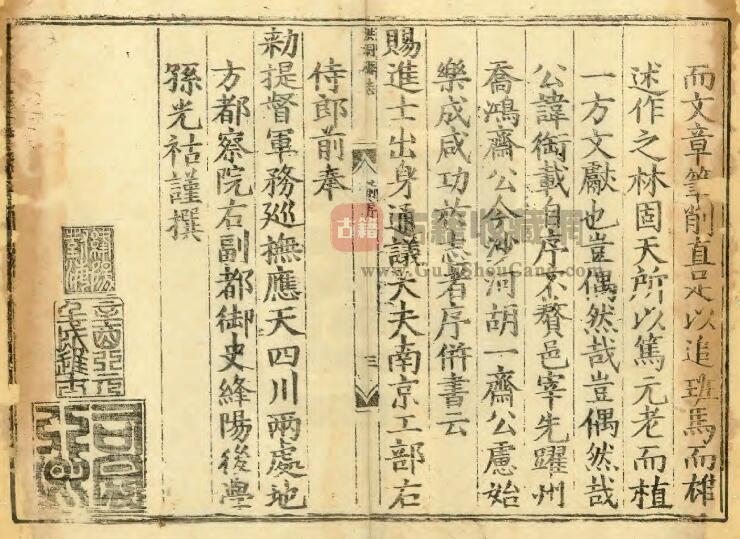 而文章筆削直足以追班馬而雄
述作之林固天所以篤元老而植
一方文獻也豈偶然哉豈偶然哉
公諱銜載自序不贅邑宰先躍州
喬鴻齋公今沙河胡一齋公慮始
樂成咸功茲志者序併書云
賜進士出身通議大夫南京工部右
洪洞縣志
三
侍郎前奉
勑提督軍務巡撫應天四川兩處地
方都察院右副都御史絳陽後學
孫光祜謹撰
辛酉亞元
壬戌進士
古籍
古籍收藏網
www.GuJiShouCang.com